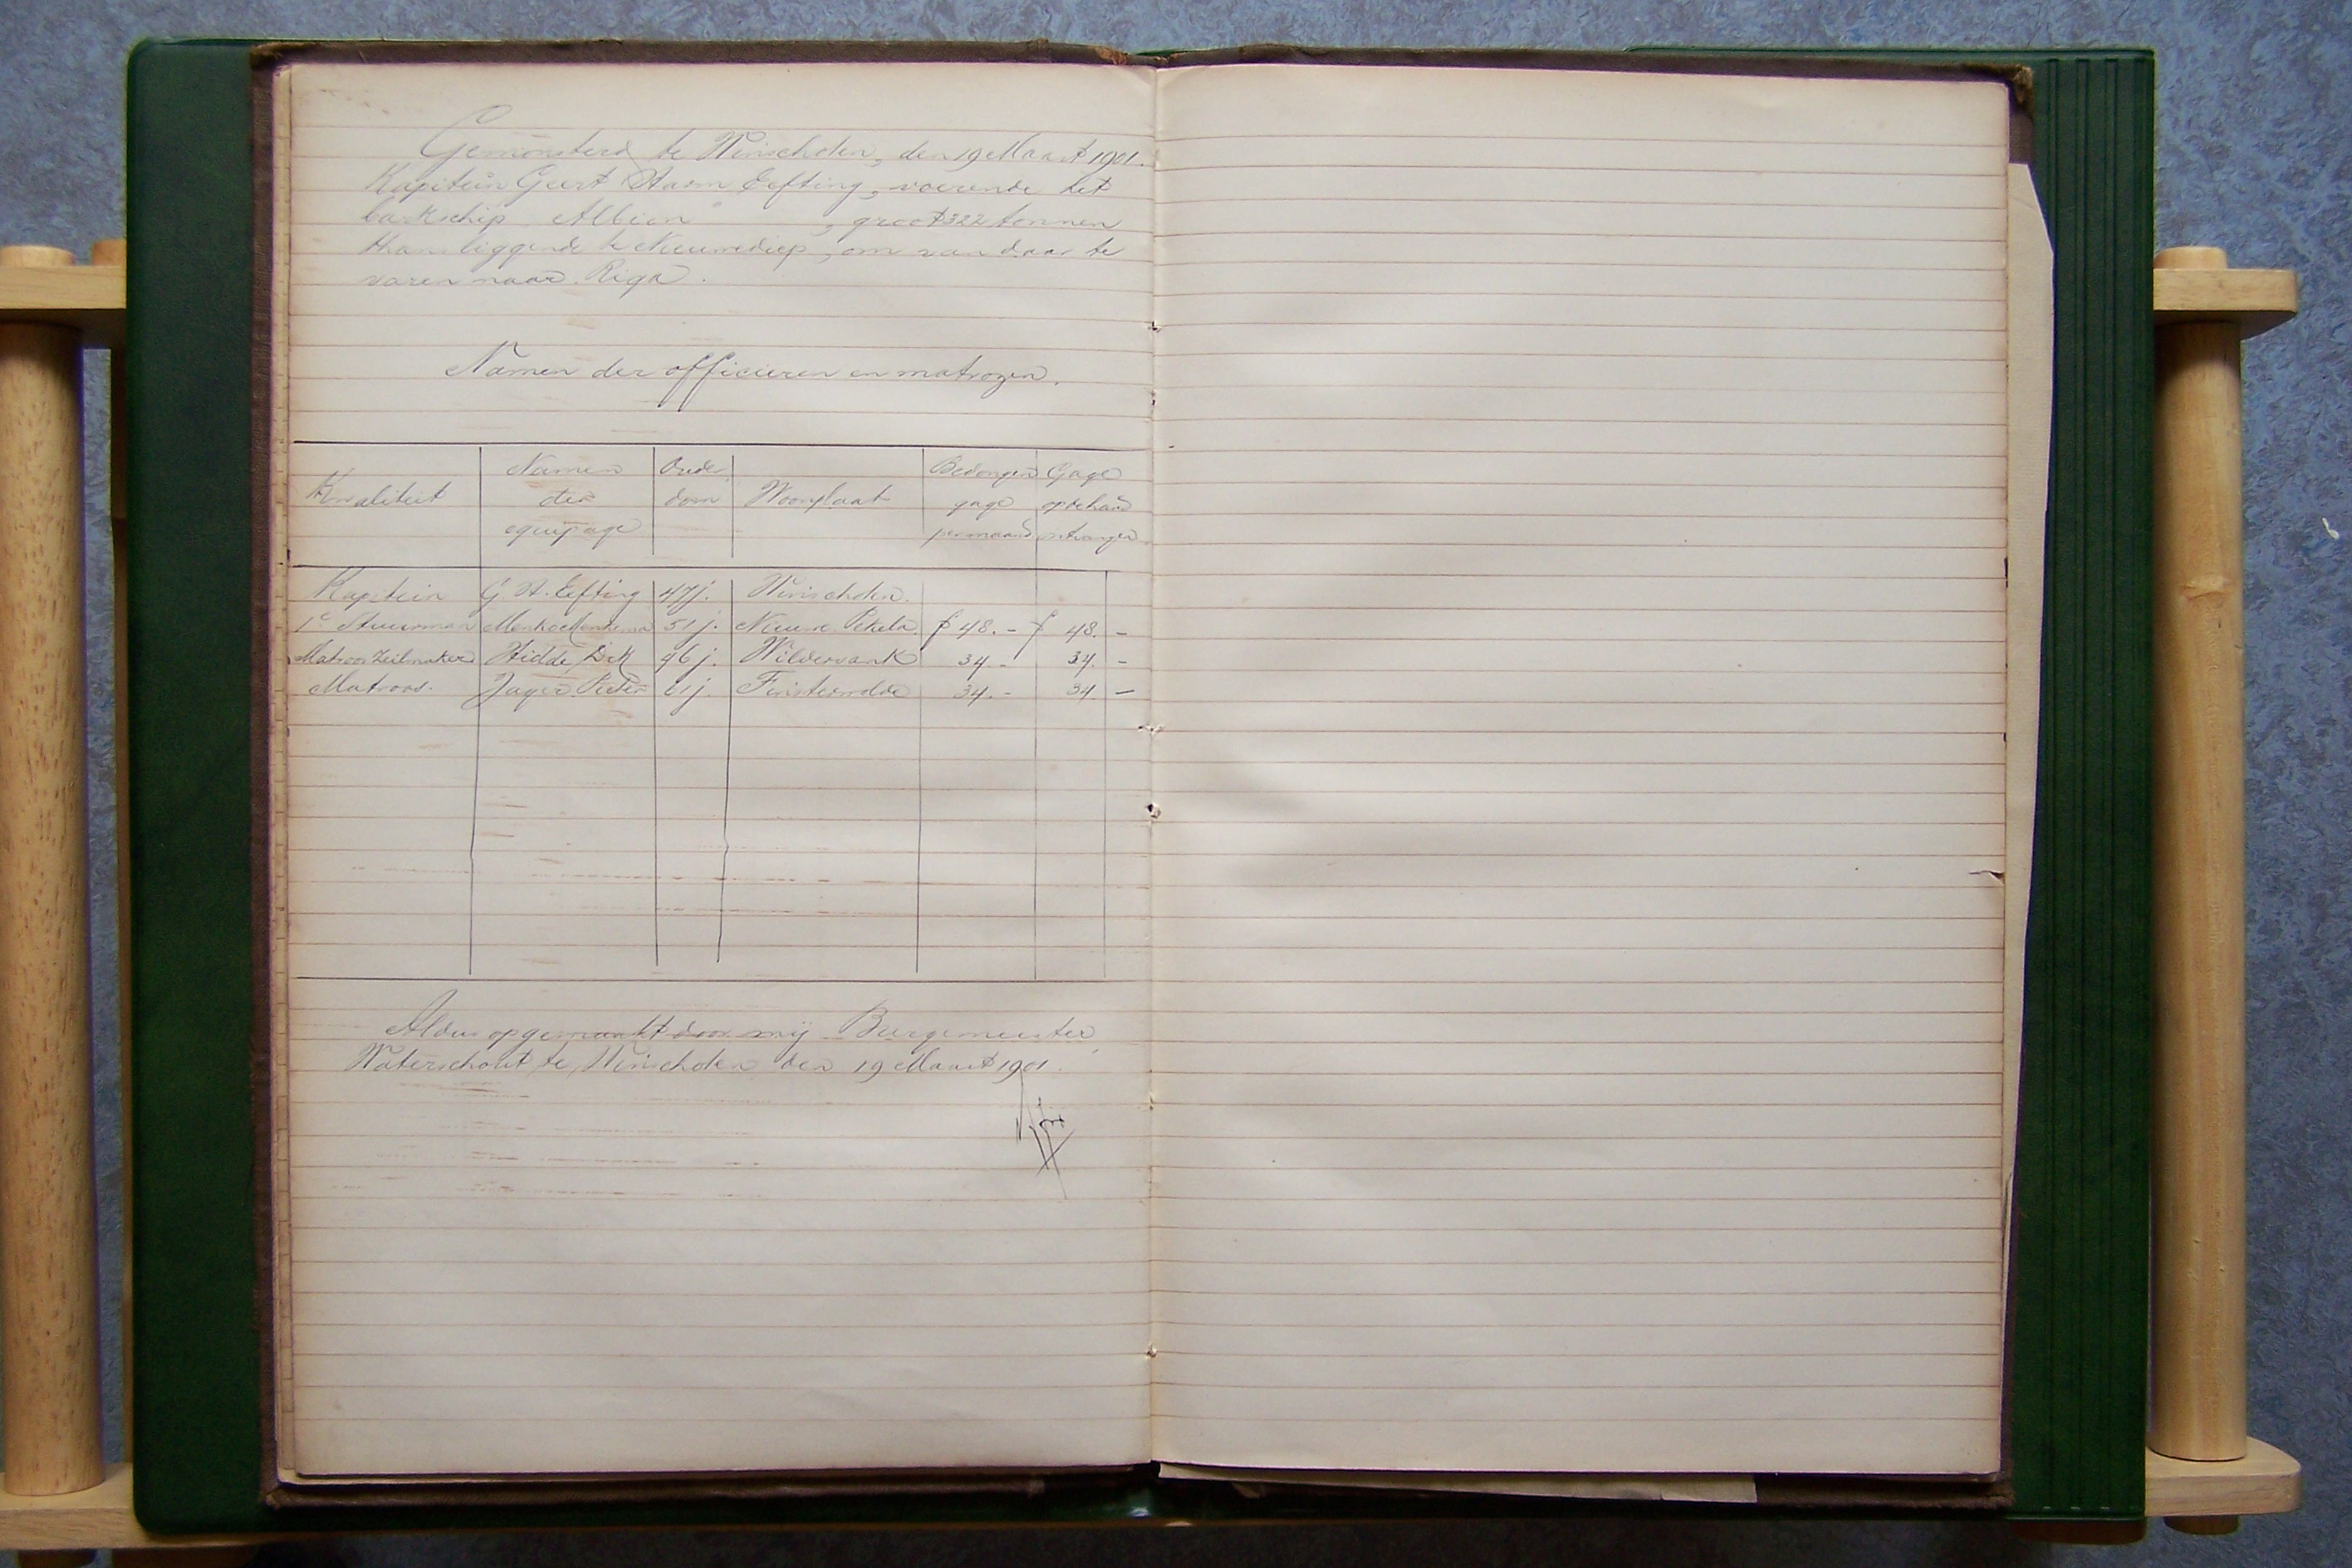 Gemonsterd te Winschoten, den 19 Maart 1901.
Kapitein Geert Harm Eefting, voerende het
barkschip Albion, groot 322 tonnen
thans liggende te Nieuwediep, om van daar te
varen naar Riga.
Namen der officieren en matrozen.
Kwaliteit Namen der equipage Ouderdom Woonplaats Bedongen gage per maand Gage op de hand ontvangen
Kapitein G. H. Eefting 47 j. Winschoten.
1e Stuurman Menko 51 j. Nieuwe Pekela f 48.- f 48.-
Matroos Zeilmaker Hidde, Dirk 46 j. Wildervank 34.- 34.-
Matroos. Jager Pieter 61 j. Finsterwolde 34.- 34 -
Aldus opgemaakt door mij Burgemeester,
Waterschout te Winschoten den 19 Maart 1901.